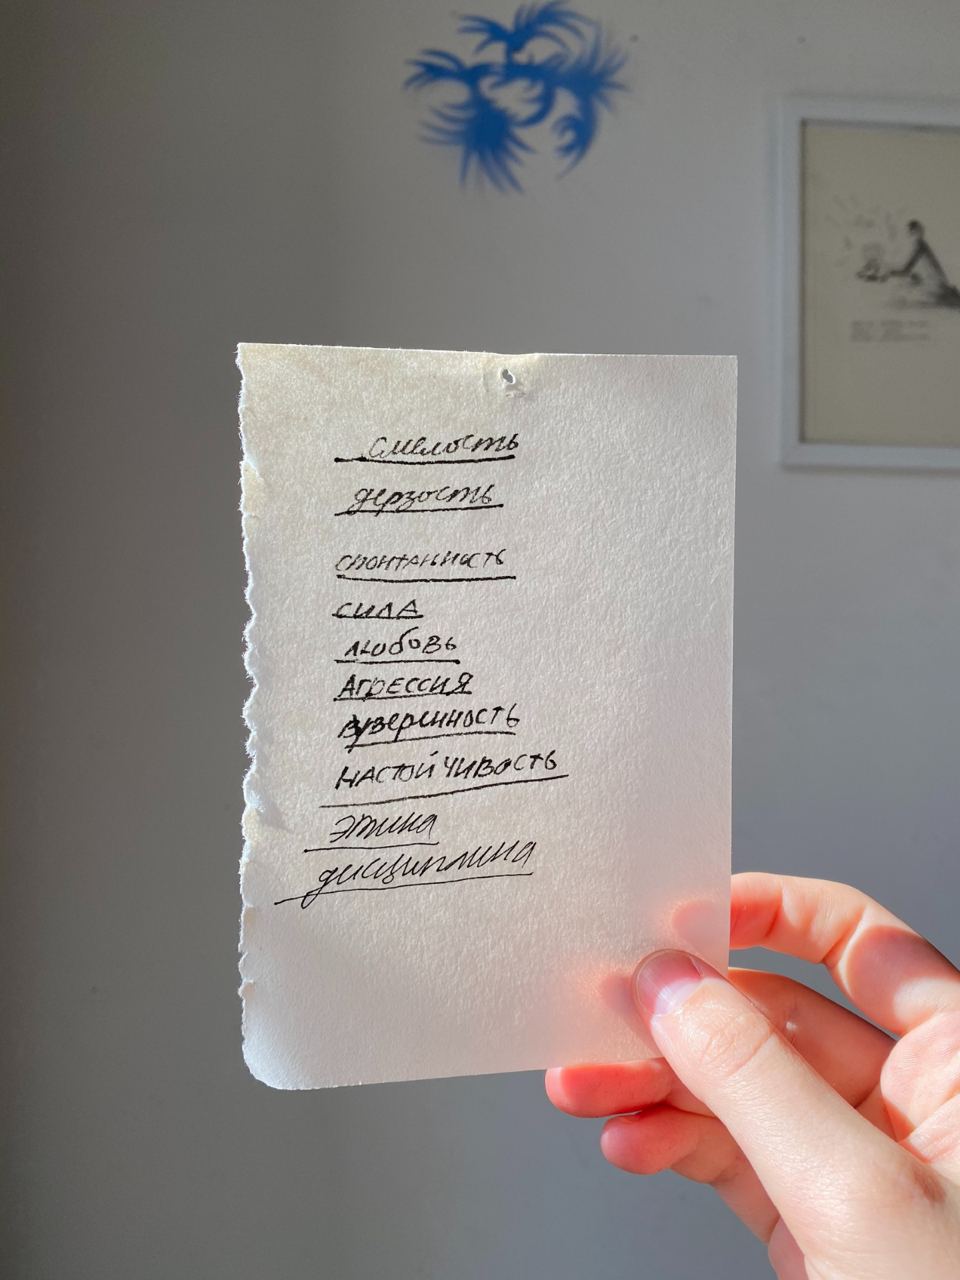 смелость
дерзость
спонтанность
сила
любовь
Агрессия
уверенность
настойчивость
этика
дисциплина